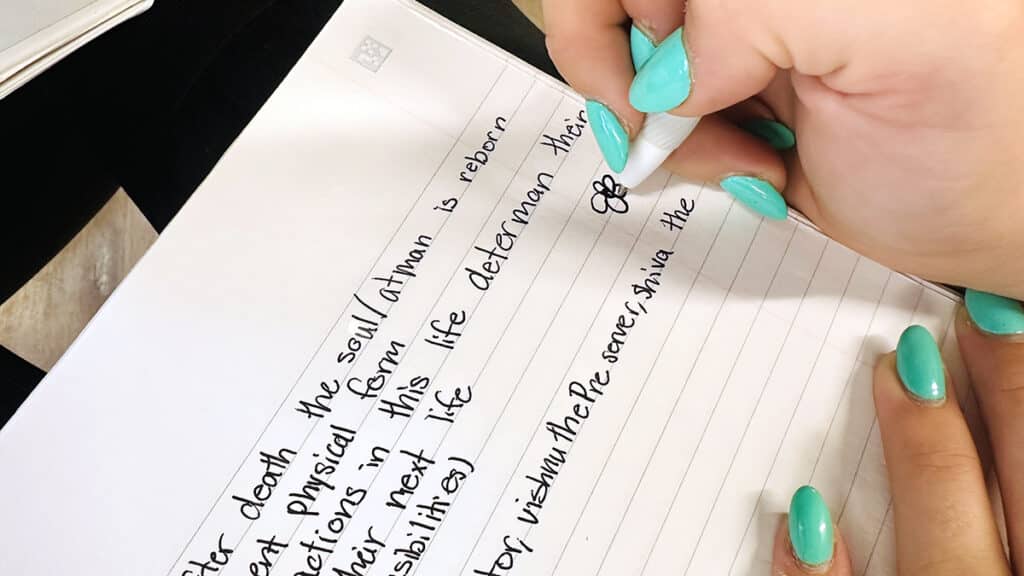 fter death the soul/atman is reborn
ent physical form
actions in this life determan their
heir next life
sibilitres)
tor, vishnu the Pre server, shiva the